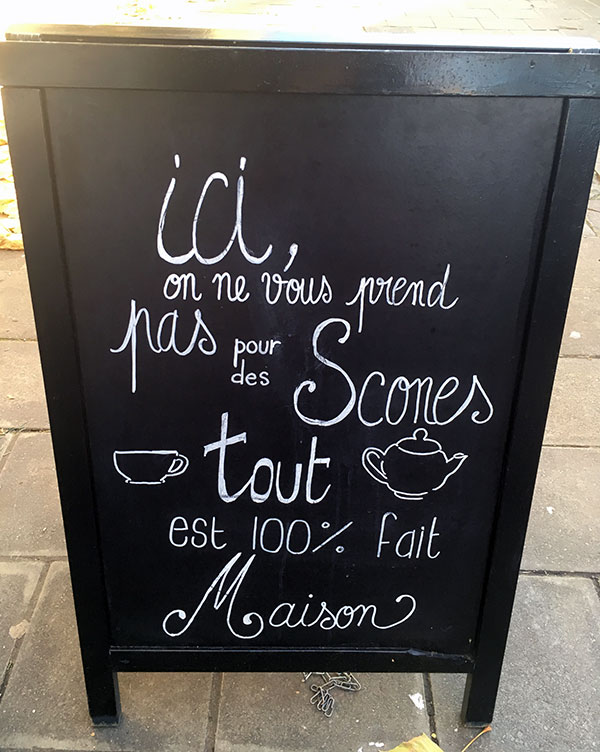 ici,
on ne vous prend
pas pour des Scones
tout
est 100% fait
Maison